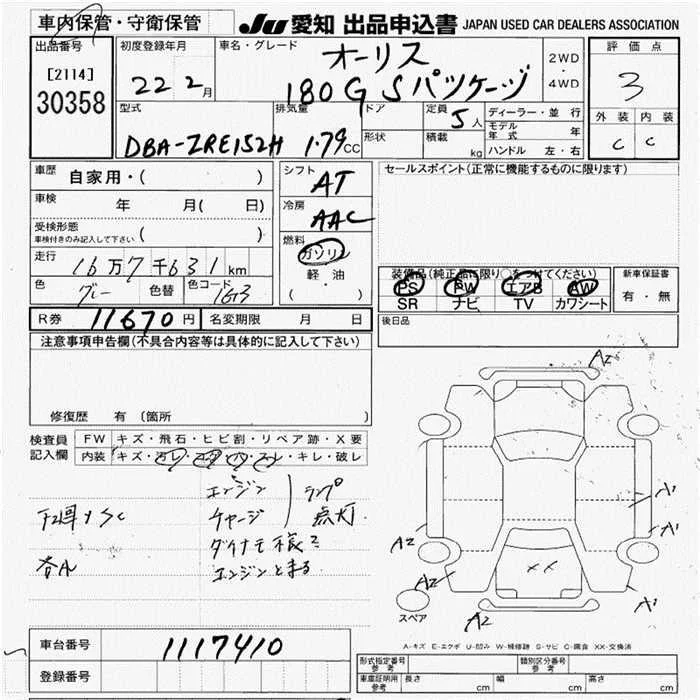 車内保管・守衛保管
JU 愛知 出品申込書 JAPAN USED CAR DEALERS ASSOCIATION
出品番号
[2114]
30358
初度登録年月
22 2月
車名・グレード
オーリス
180G Sパッケージ
2WD
・
4WD
評価点
3
外装 内装
C C
型式
DBA-ZRE152H
排気量
1.79cc
ドア
形状
定員 5人
積載 kg
ディーラー・並行
モデル年式 年
ハンドル 左・右
車歴 自家用・( )
車検 年 月( 日)
受検形態
車検付きのみ記入して下さい ( )
走行 16万7千631km
色 グレー 色替 色コード 1G3
シフト
AT
冷房
AAC
燃料
ガソリン
軽・油
( ・ )
セールスポイント(正常に機能するものに限ります)
装備品(純正品に限り○をつけてください)
PS PW エアB AW
SR ナビ TV カワシート
新車保証書
有・無
後日品
R券 11670円 名変期限 月 日
注意事項申告欄(不具合内容等は具体的に記入して下さい)
修復歴 有(箇所 )
検査員記入欄
FW キズ・飛石・ヒビ割・リペア跡・X要
内装 キズ・汚レ・コゲ・穴・スレ・キレ・破レ
エンジン
チャージ
ランプ
点灯
下廻りSC
ダイナモ様こ
エンジンとまる
各A
A2
A1
A1
A2
A2
A1
A2
××
スペア
A-キズ E-エクボ U-凹み W-補修跡 S-サビ C-腐食 XX-交換済
車台番号 1117410
登録番号
形式指定番号 参考
類別区分番号 参考
車庫証明用 参考 長さ cm 幅 cm 高さ cm